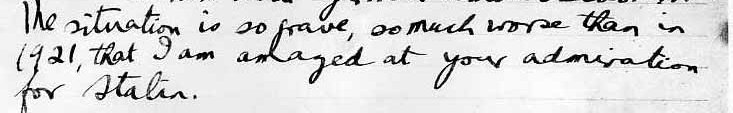 The situation is so grave, so much worse than in
1921, that I am amazed at your admiration
for Stalin.